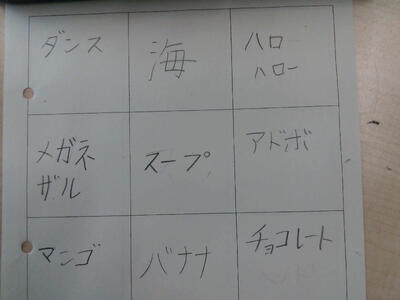 ダンス
海
ハロ
ハロー
メガネ
ザル
スープ
アドボ
マンゴ
バナナ
チョコレート